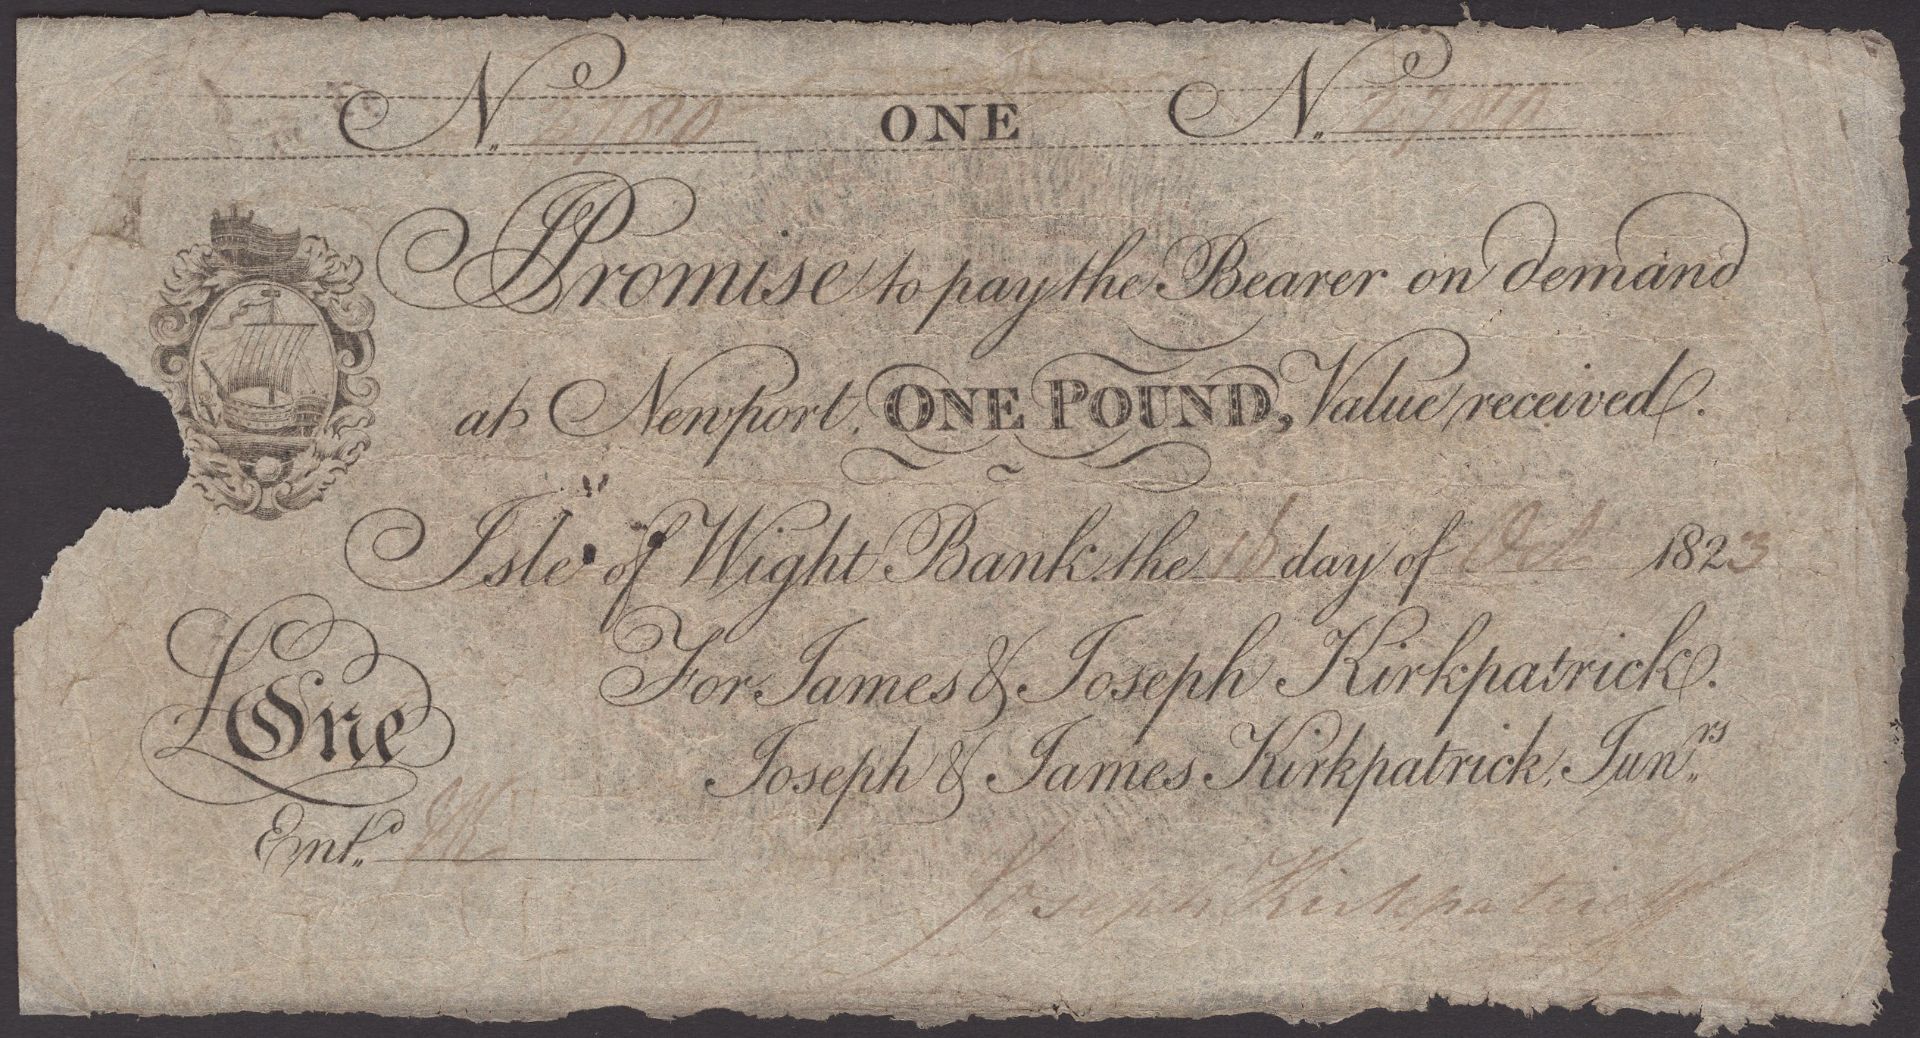 No. ONE No.
I Promise to pay the Bearer on demand
at Newport, ONE POUND, Value received.
Isle of Wight Bank the 16 day of Oct 1823
For James & Joseph Kirkpatrick.
£ One
Joseph & James Kirkpatrick, Junrs.
Entd. JK
Joseph Kirkpatrick